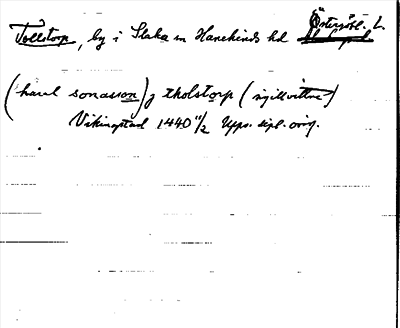 Tollstorp, by i Slaka sn Hanekinds hd Östergötl. L.
(harul sonasson) j tholstorp (sigillvittne)
Vikingstad 1440 11/2 Upps. dipl. orig.